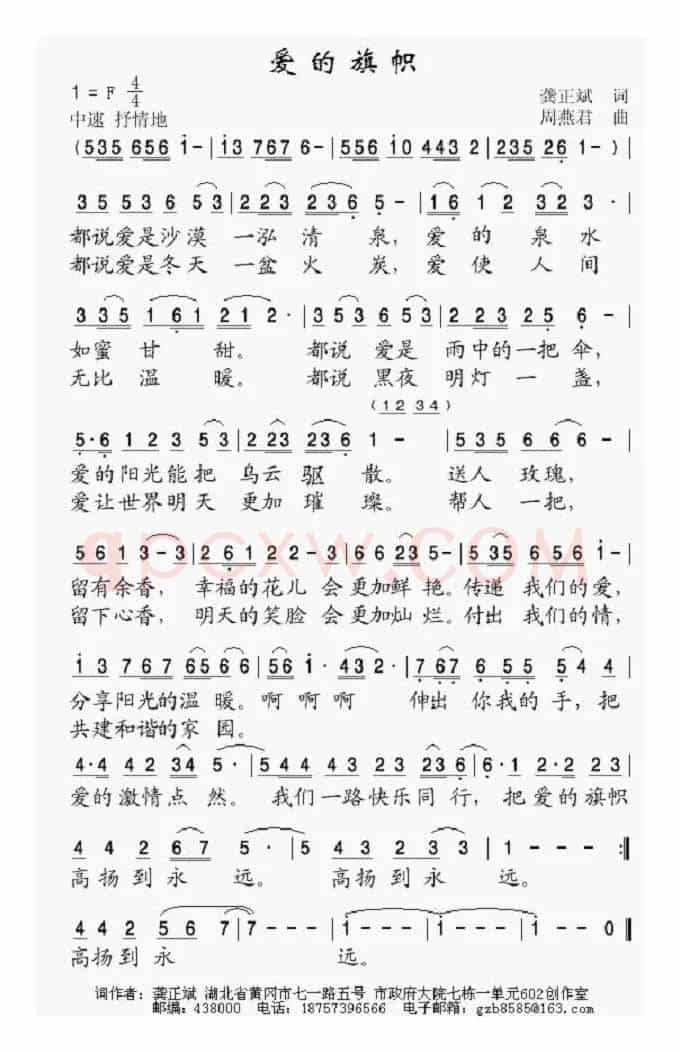 爱的旗帜
1=F 4/4
龚正斌 词
中速 抒情地
周燕君 曲
(535 656 i-|i3 767 6-|556 i0 443 2|235 26 1-)|
35 536 53|223 236 5-|16 12 32 3·|
都说爱是沙漠 一泓 清 泉，爱 的 泉 水
都说爱是冬天 一盆 火 炭，爱 使 人 间
335 161 21 2·|353 653 6-|223 225 6-|
如蜜 甘 甜。 都说 爱是 雨中的一把 伞，
无比 温 暖。 都说 黑夜 明灯 一 盏，
(12 34)
5·6 12 3 53|223 236 1-|535 66 6-|
爱的 阳光能 把 乌云 驱 散。 送人 玫瑰，
爱让 世界明 天 更加 璀 璨。 帮人 一把，
561 3-3|261 22 3-3|66 235-|535 656 i-|
留有余香， 幸福的花儿 会 更加鲜 艳。传递 我们的爱，
留下心香， 明天的笑脸 会 更加灿 烂。付出 我们的情，
apcxw.COM
i3 767 656 6|56 i· 432·|767 655 54|
分享阳光的温 暖。啊 啊啊 伸出 你我的 手，把
共建和谐的家 园。
4·4 42 34 5·|544 43 23 236|6·2 2·2 23|
爱的 激情点 然。 我们一路快乐同 行，把 爱的 旗帜
44 2 67 5·|5 43 2 33|1---:‖
高扬到 永 远。 高扬到 永 远。
44 2 56 7|7---|1---|1---|1--0‖
高扬到 永 远。
词作者：龚正斌 湖北省黄冈市七一路五号 市政府大院七栋一单元602创作室
邮编：438000 电话：18757396566 电子邮箱：gzb8585@163.com